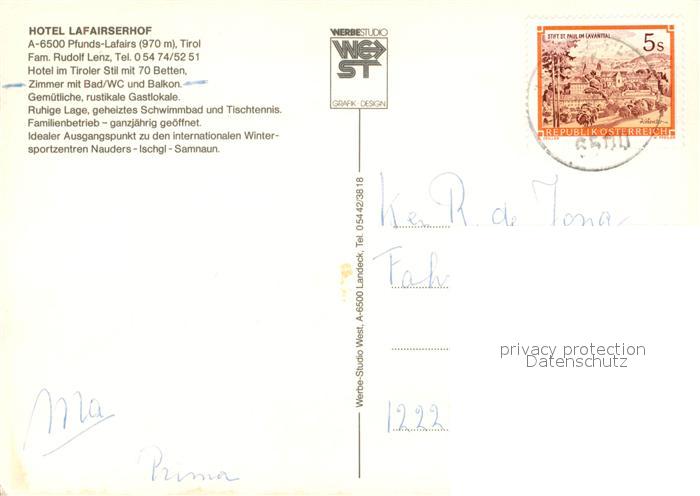 HOTEL LAFAIRSERHOF
A-6500 Pfunds-Lafairs (970 m), Tirol
Fam. Rudolf Lenz, Tel. 0 54 74/52 51
Hotel im Tiroler Stil mit 70 Betten,
Zimmer mit Bad/WC und Balkon.
Gemütliche, rustikale Gastlokale.
Ruhige Lage, geheiztes Schwimmbad und Tischtennis.
Familienbetrieb – ganzjährig geöffnet.
Idealer Ausgangspunkt zu den internationalen Winter-
sportzentren Nauders - Ischgl - Samnaun.
WERBESTUDIO
WEST
GRAFIK - DESIGN
STIFT ST. PAUL IM LAVANTTAL
5 s
REPUBLIK ÖSTERREICH
Werbe-Studio West, A-6500 Landeck, Tel. 0 54 42/38 18
R. de Jona
Fah
privacy protection
Datenschutz
1222
Prima